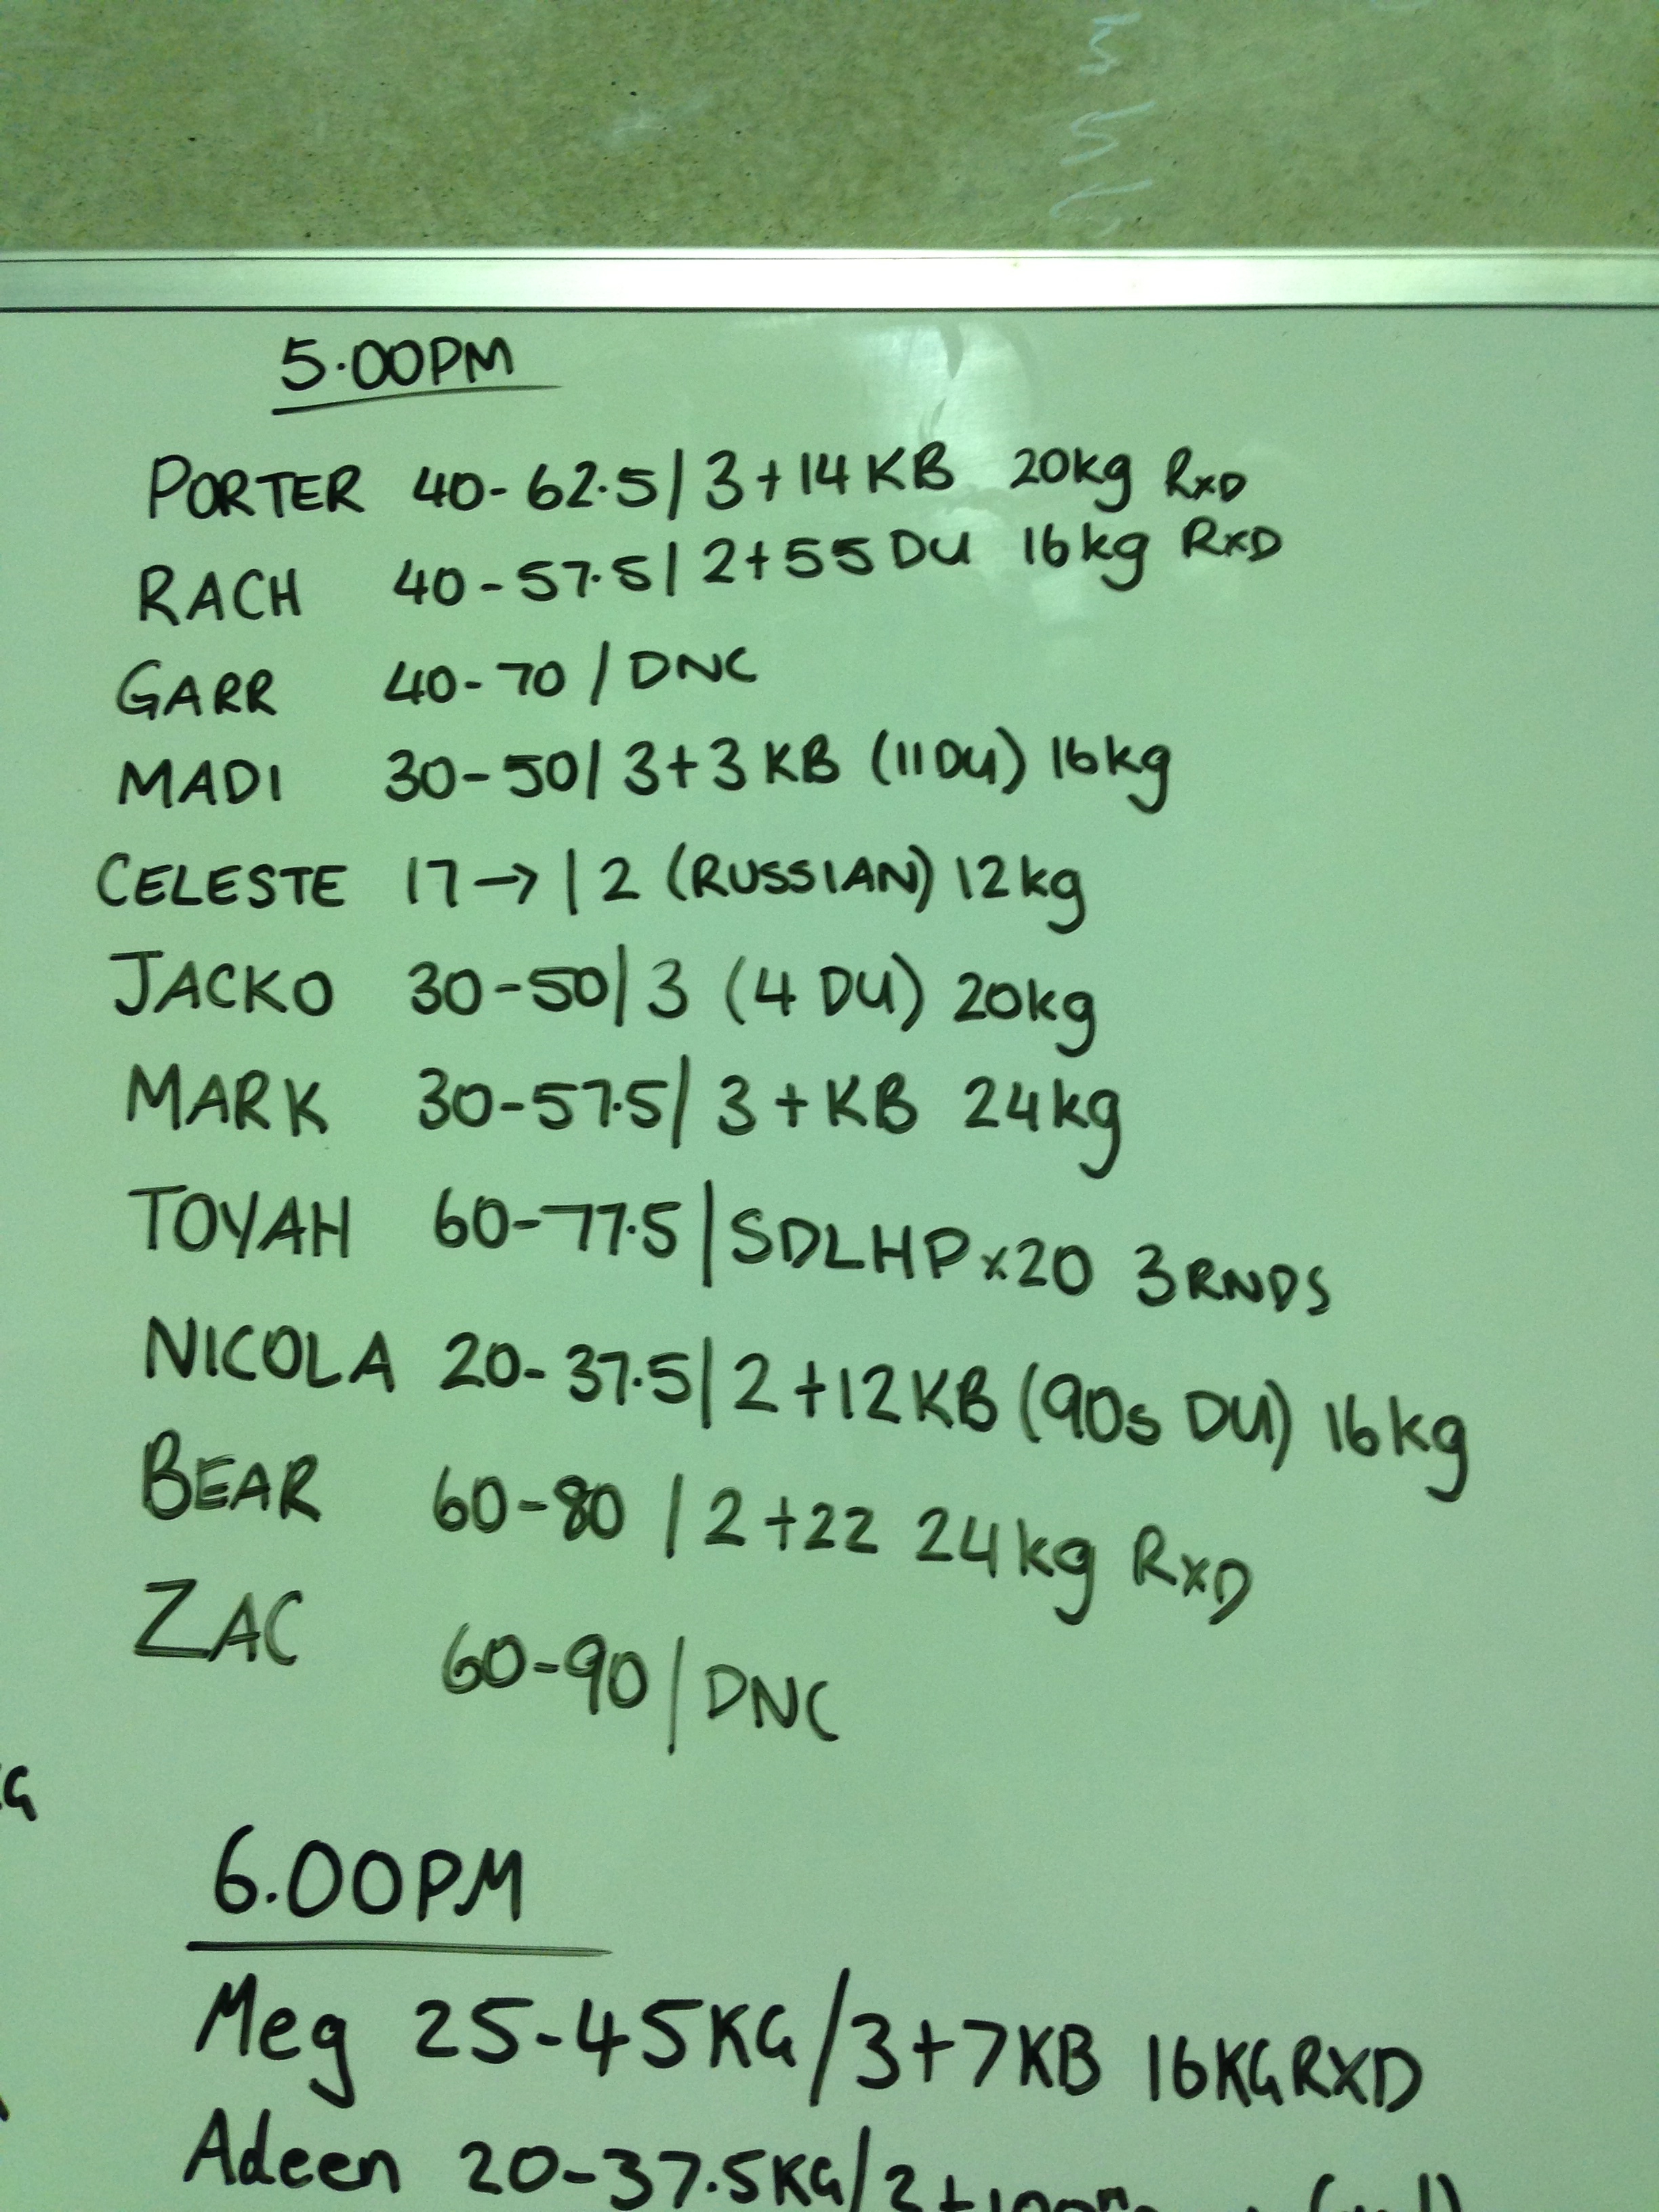 5.00PM
PORTER 40-62.5/ 3+14 KB 20kg RxD
RACH 40-57.5/ 2+55 DU 16kg RxD
GARR 40-70 / DNC
MADI 30-50/ 3+3 KB (11DU) 16kg
CELESTE 17→ / 2 (RUSSIAN) 12kg
JACKO 30-50/ 3 (4 DU) 20kg
MARK 30-57.5/ 3 + KB 24kg
TOYAH 60-77.5 / SDLHP x20 3RNDS
NICOLA 20-37.5/ 2 +12KB (90s DU) 16kg
BEAR 60-80 / 2 +22 24kg RxD
ZAC 60-90 / DNC
6.00PM
Meg 25-45KG/3+7KB 16KG RXD
Adeen 20-37.5KG/2+